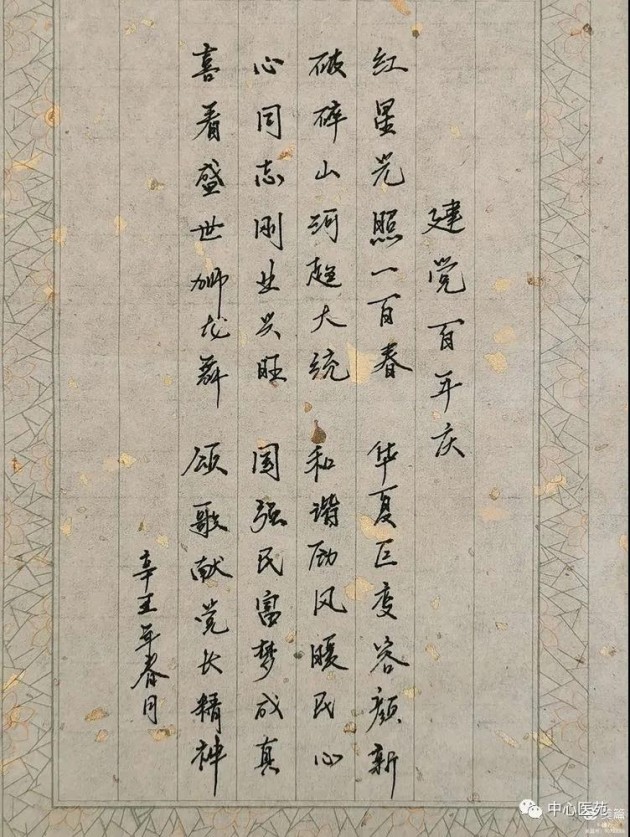 建党百年庆
红星光照一百春 华夏巨变容颜新
破碎山河趋大统 和谐风暖民心
心同志刚业兴旺 国强民富梦成真
喜看盛世狮龙舞 颂歌献党长精神
辛丑年春月
中心医苑